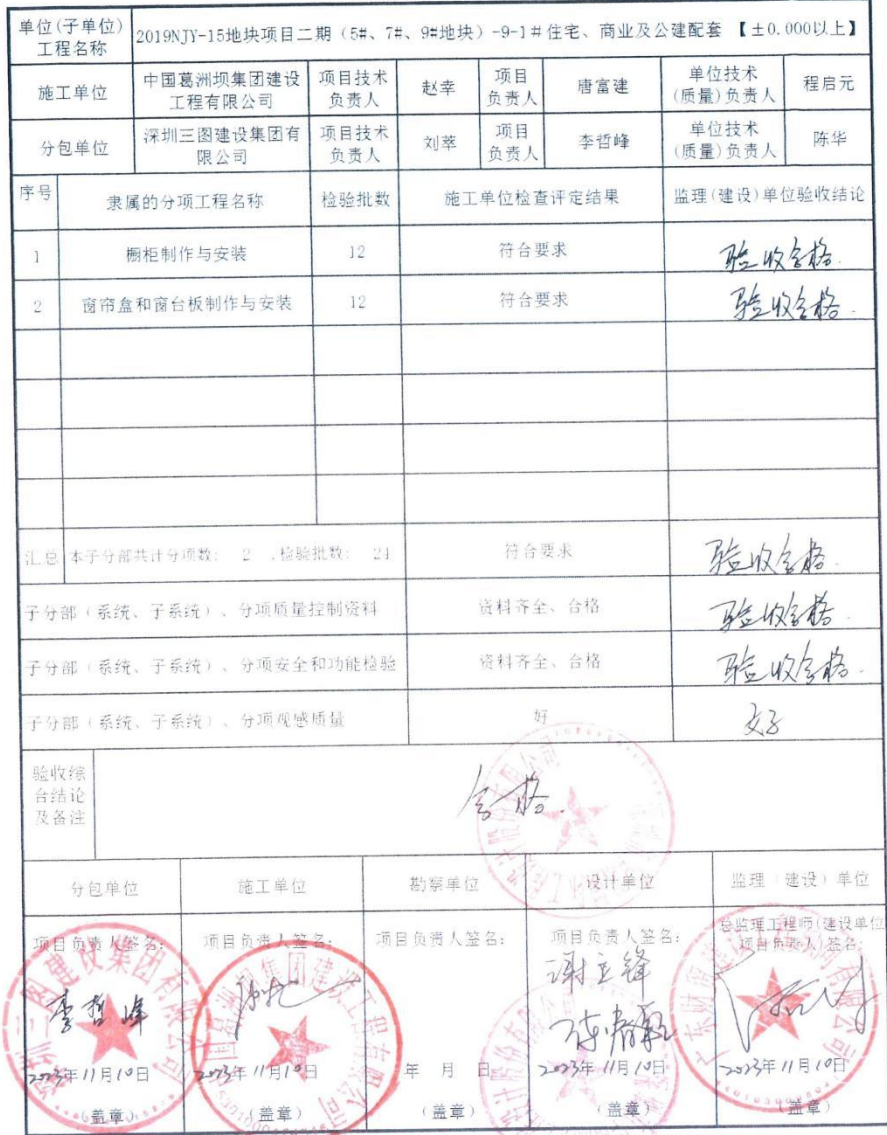 单位(子单位)工程名称 2019NJY-15地块项目二期（5#、7#、9#地块）-9-1#住宅、商业及公建配套 【±0.000以上】
施工单位 中国葛洲坝集团建设工程有限公司 项目技术负责人 赵幸 项目负责人 唐富建 单位技术(质量)负责人 程启元
分包单位 深圳三图建设集团有限公司 项目技术负责人 刘萃 项目负责人 李哲峰 单位技术(质量)负责人 陈华
序号 隶属的分项工程名称 检验批数 施工单位检查评定结果 监理(建设)单位验收结论
1 橱柜制作与安装 12 符合要求 验收合格.
2 窗帘盒和窗台板制作与安装 12 符合要求 验收合格.
汇总 本子分部共计分项数: 2 ,检验批数: 24 符合要求 验收合格.
子分部（系统、子系统）、分项质量控制资料 资料齐全、合格 验收合格.
子分部（系统、子系统）、分项安全和功能检验 资料齐全、合格 验收合格.
子分部（系统、子系统）、分项观感质量 好 好
验收综合结论及备注 合格.
分包单位 施工单位 勘察单位 设计单位 监理（建设）单位
项目负责人签名: 项目负责人签名: 项目负责人签名: 项目负责人签名: 总监理工程师(建设单位项目负责人)签名:
李哲峰 谢立锋
2023年11月10日 2023年11月10日 年 月 日 2023年11月10日 2023年11月10日
(盖章) (盖章) (盖章) (盖章) (盖章)